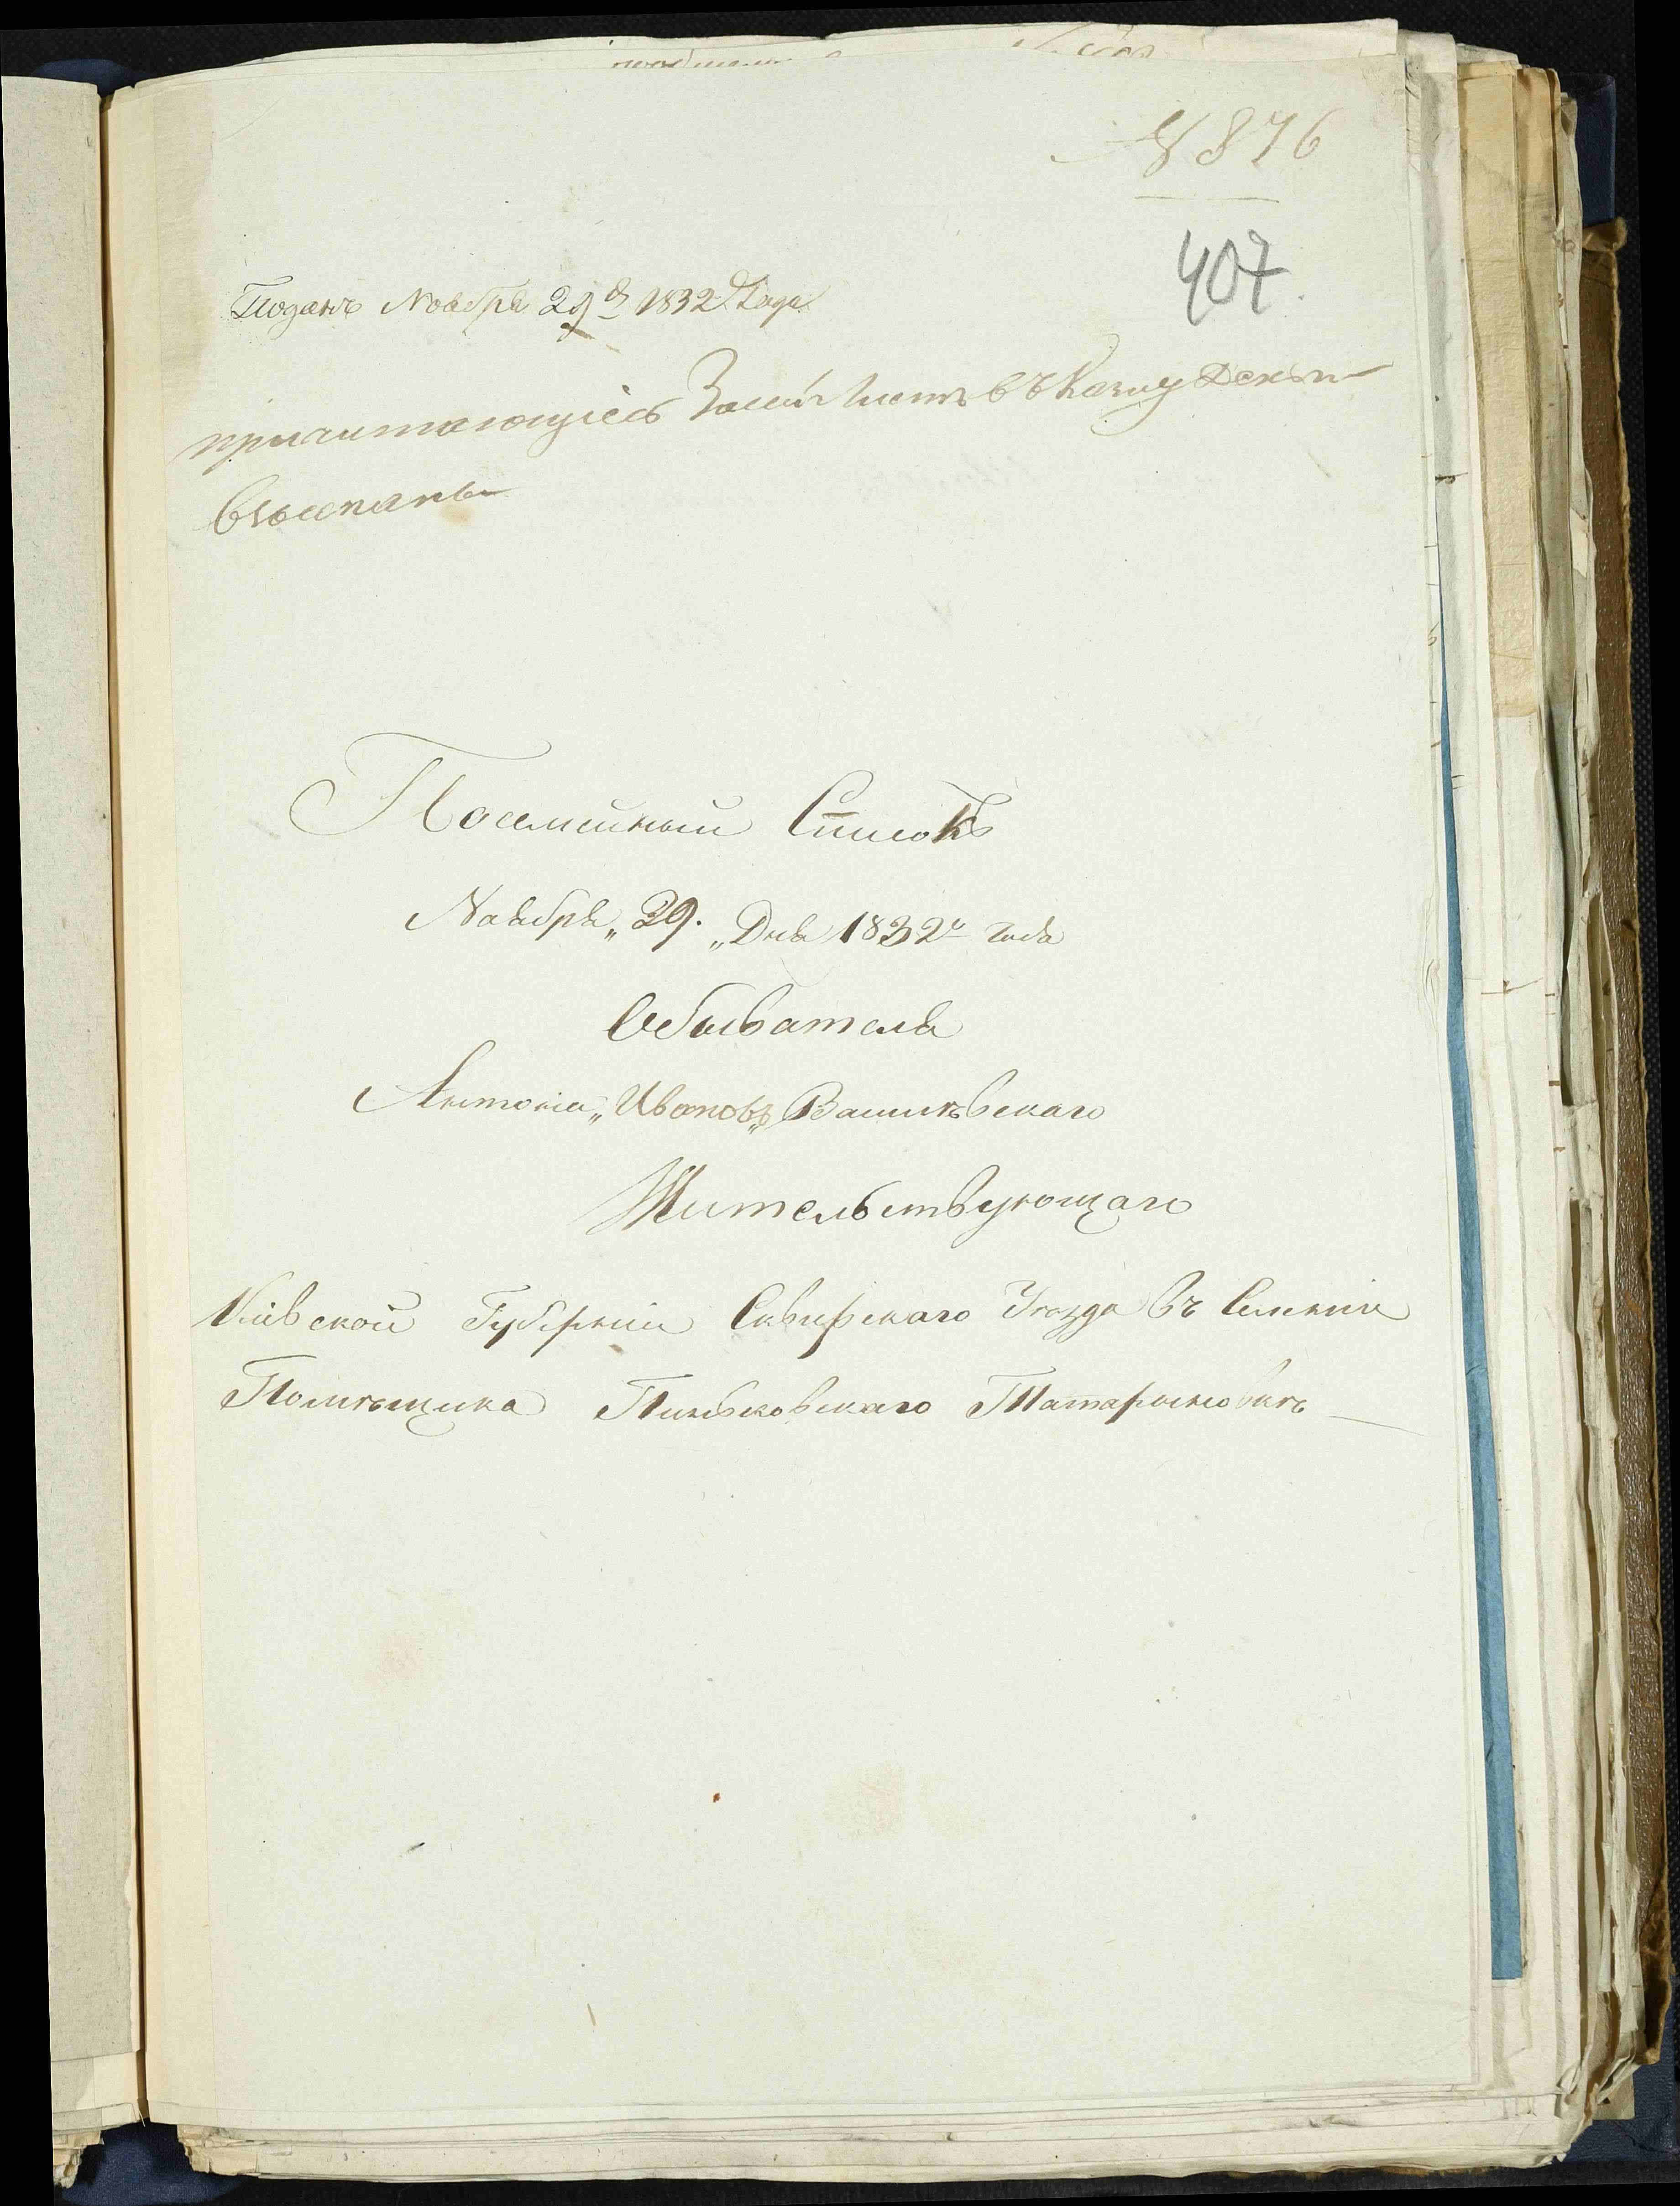 № 876
407.
Поданъ Ноября 29го 1832 Года
причитающіесь За сей листъ въ Казну деньги
взысканы
Посемейный Списокъ
Ноября „29.„ Дня 1832го года
Обывателя
Антонія „Иванова„ Вашкѣвскаго
Жительствующаго
Кіевской Губерніи Сквирскаго Уѣзда въ Селеніи
Помѣщика Пиньковскаго Татариновкѣ